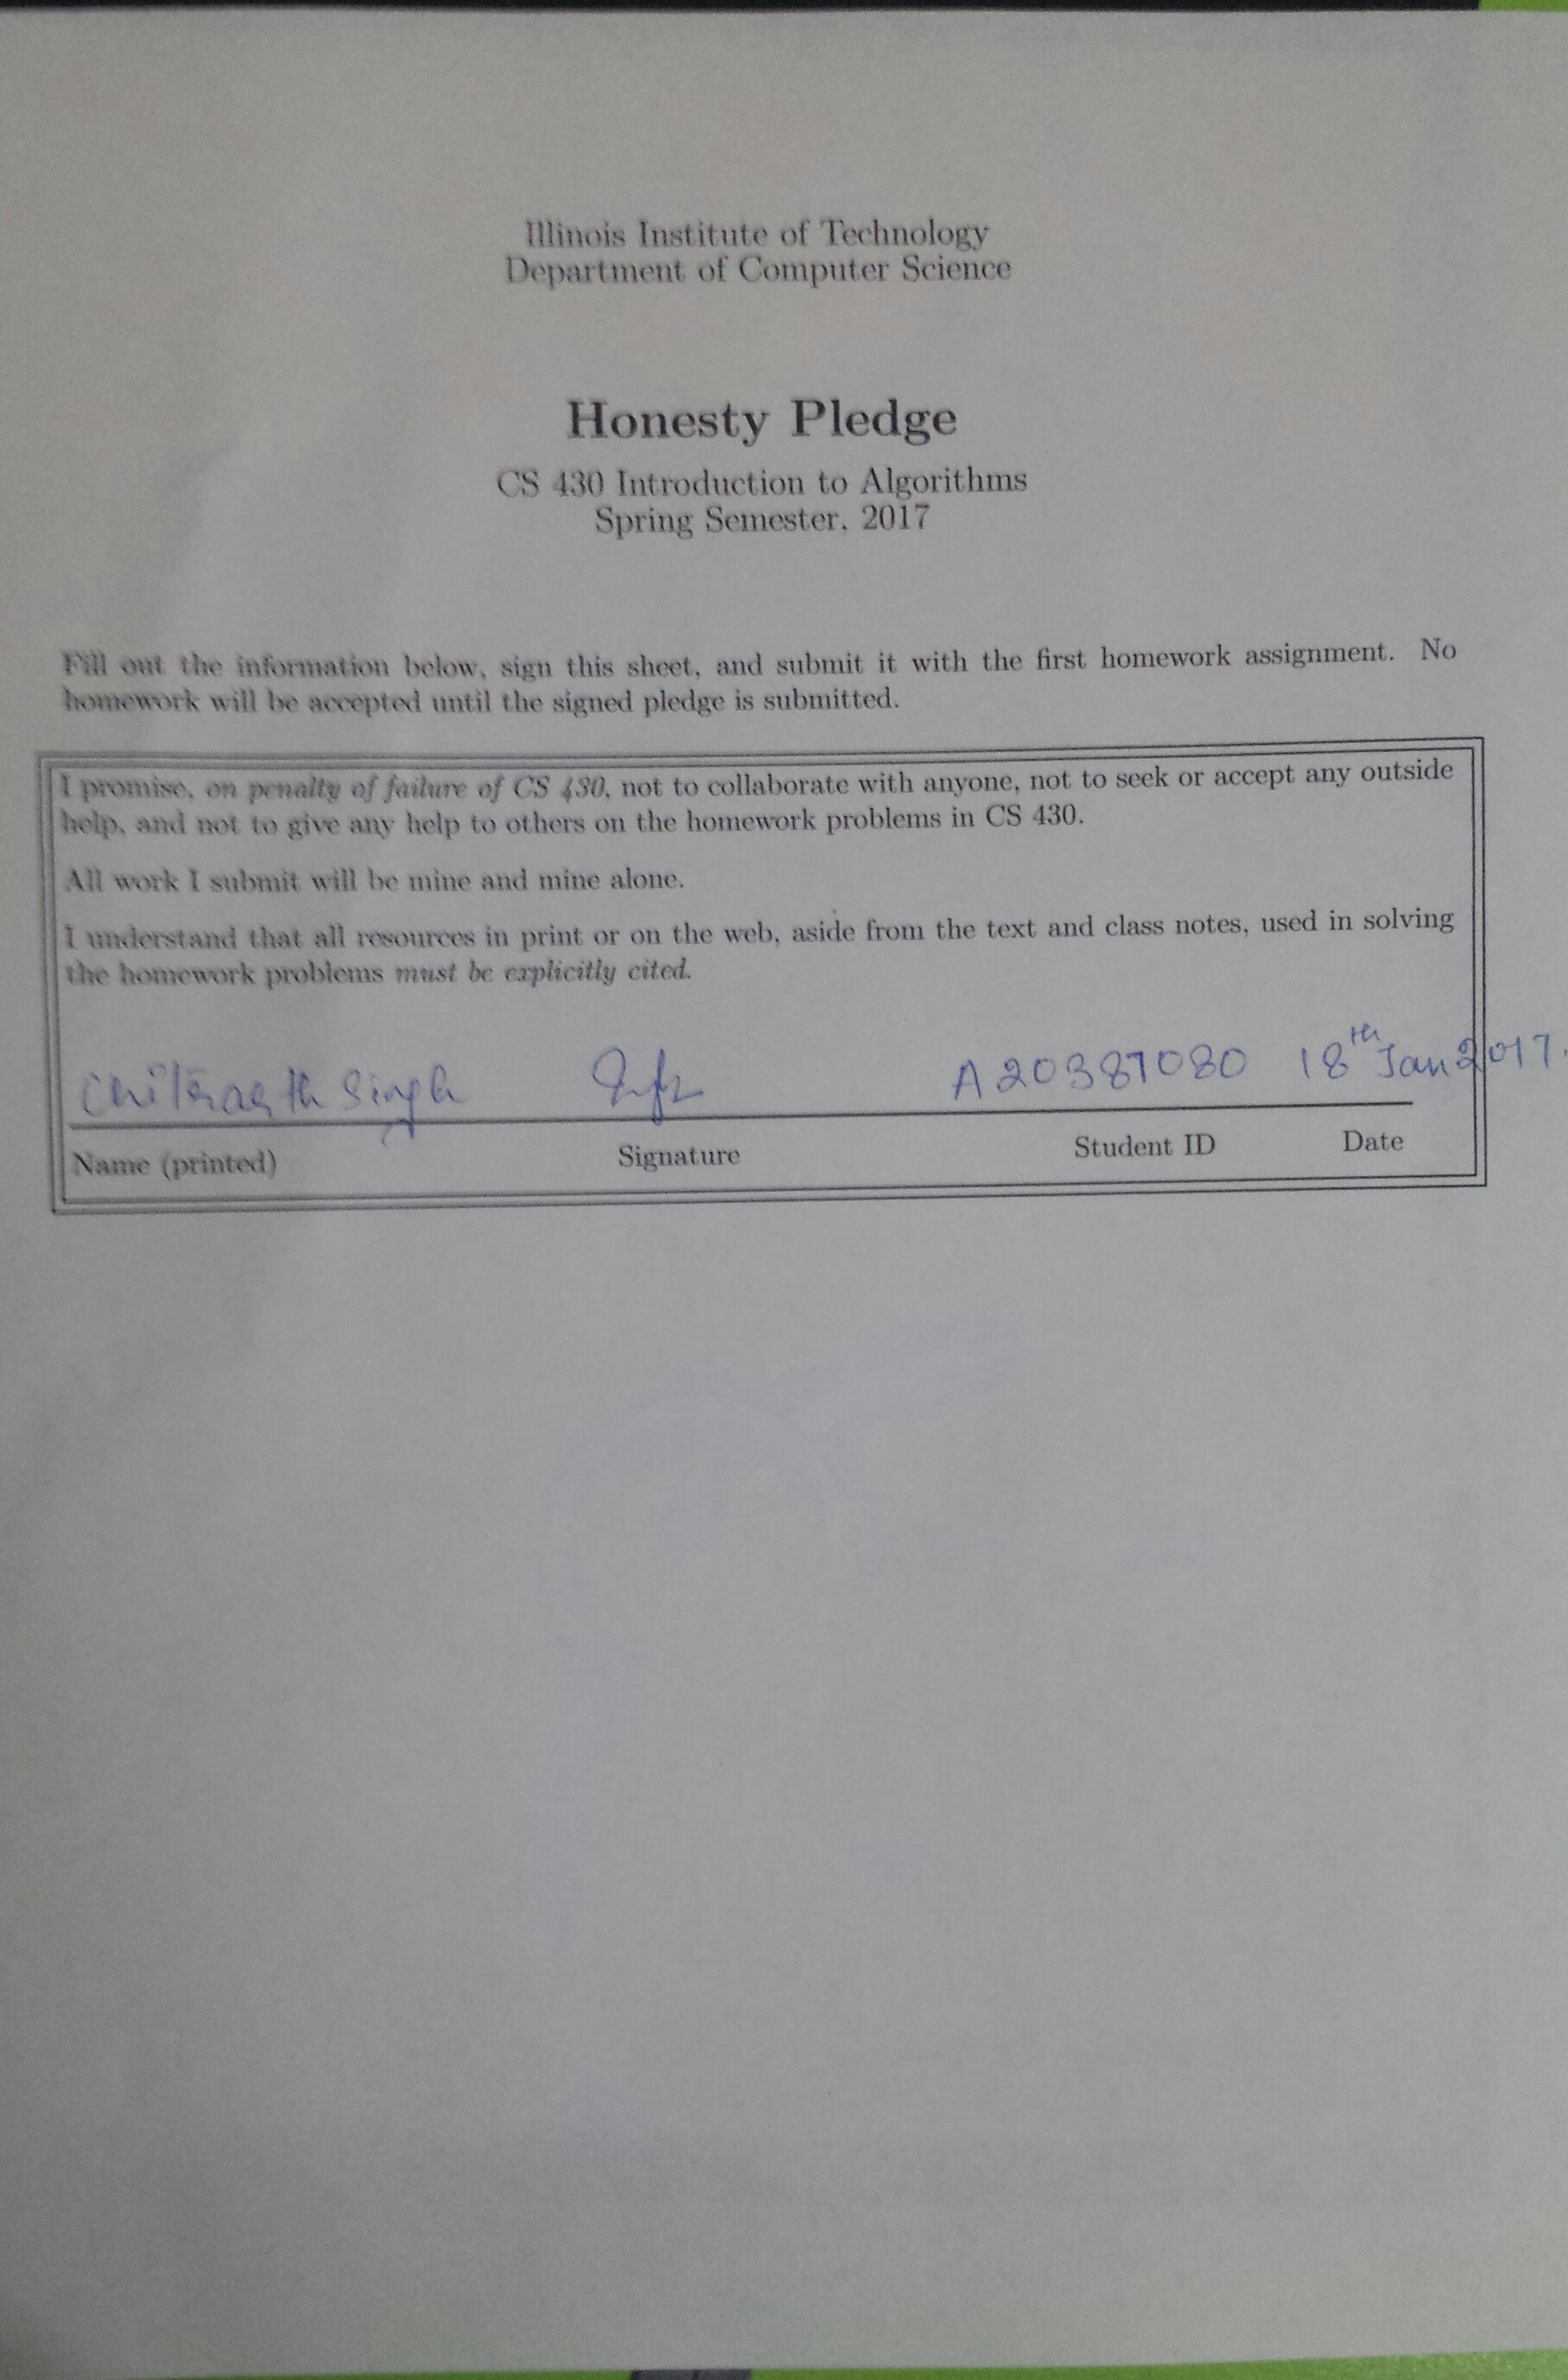 Illinois Institute of Technology
Department of Computer Science
Honesty Pledge
CS 430 Introduction to Algorithms
Spring Semester, 2017
Fill out the information below, sign this sheet, and submit it with the first homework assignment. No
homework will be accepted until the signed pledge is submitted.
I promise, on penalty of failure of CS 430, not to collaborate with anyone, not to seek or accept any outside
help, and not to give any help to others on the homework problems in CS 430.
All work I submit will be mine and mine alone.
I understand that all resources in print or on the web, aside from the text and class notes, used in solving
the homework problems must be explicitly cited.
Singh A20387080 18th Jan 2017.
Name (printed) Signature Student ID Date